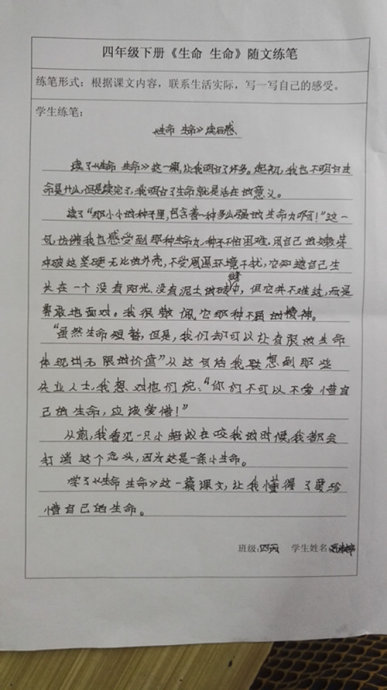 四年级下册《生命 生命》随文练笔
练笔形式：根据课文内容，联系生活实际，写一写自己的感受。
学生练笔：
《生命 生命》读后感
读了《生命 生命》这一篇，让我明白了许多。起初，我也不明白生
命是什么，但是读完了，我明白了生命就是活在的意义。
读了“那小小的种子里，包含着一种多么强的生命力啊！”这一
句，仿佛我也感受到那种生命力，种不怕困难，用自己的嫩芽
冲破这坚硬无比的外壳，不受周围环境干扰，它知道自己生
长在一个没有阳光，没有泥土的砖缝中，但它并不难过，而是
勇敢地面对。我很敬佩它那种不屈的精神。
“虽然生命短暂，但是，我们却可以让有限的生命
体现出无限的价值”从这句话我联想到那些
失业人士，我想对他们说：“你们不可以不爱惜自
己的生命，应该爱惜！”
从前，我看见一只小蚂蚁在咬我的时候，我都会
打消这个念头，因为这是一条小生命。
学了《生命 生命》这一篇课文，让我懂得了要珍
惜自己的生命。
班级：四 学生姓名：